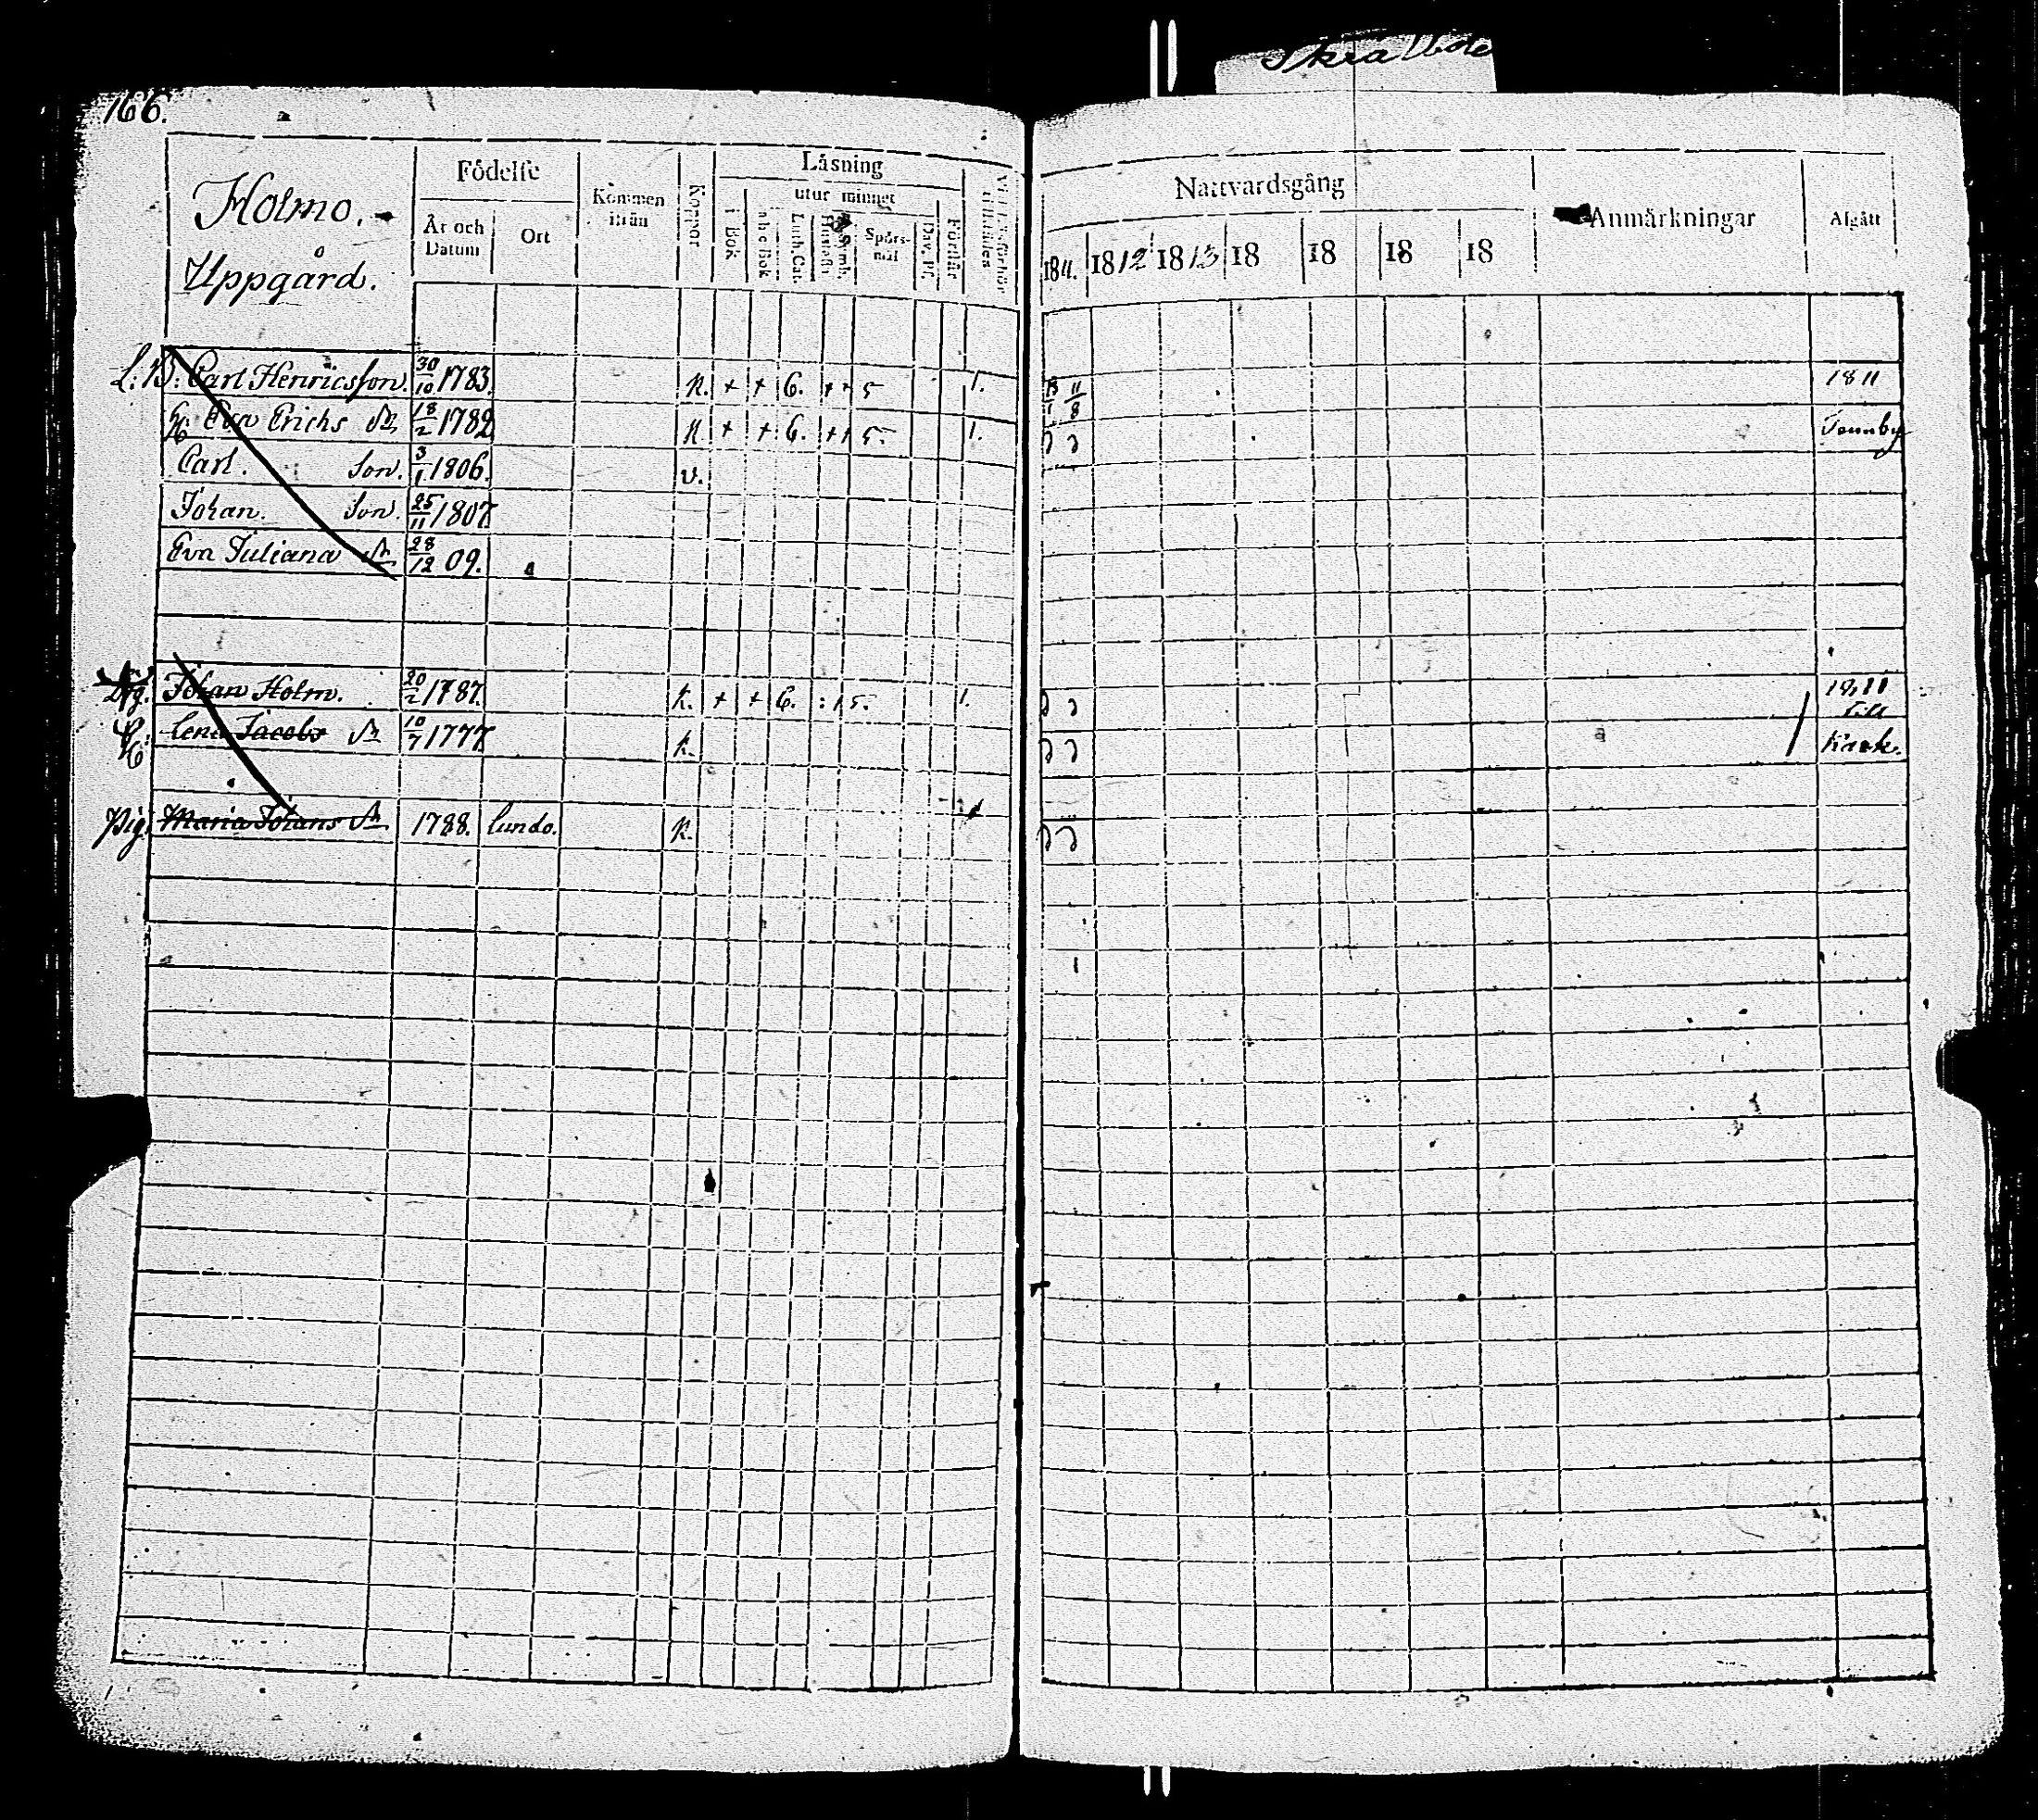 166.
Holmo.
Uppgård.
Födelse
År och Datum
Ort
Kommen ifrån
Koppor
Läsning
utur minnet
i Bok
Luth. Cat.
Spörsmål
Dav. Ps.
Förstår
Nattvardsgång
1811. 1812 1813 18 18 18 18
Anmärkningar
Afgått
L: B: Carl Henricsson. 30/10 1783. k. + + 6. + + 5 1. 11/8 1811
H. Eva Erichs dr 18/2 1782 k. + + 6. + + 5. 1.
Carl. Son. 3/1 1806. v.
Johan. Son. 25/11 1807
Eva Juliana dr 28/12 09.
Johan Holm. 20/2 1787. k. + + 6. 5. 1. 1811
till
H: Lena Jacobs dr 10/7 1777. k.
Pig. Maria Johans dr 1788. Lundo. k.